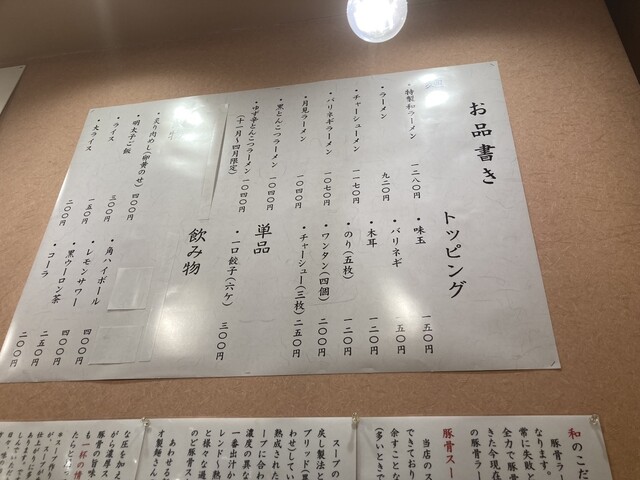 お品書き
・特製和ラーメン 一二八〇円
・ラーメン 九二〇円
・チャーシューメン 一一七〇円
・バリネギラーメン 一〇七〇円
・月見ラーメン 一〇四〇円
・黒とんこつラーメン 一〇四〇円
・ゆず辛とんこつラーメン 一〇四〇円
(十一月〜四月限定)
・炙り肉めし(卵黄のせ) 四〇〇円
・明太子ご飯 三〇〇円
・ライス 一五〇円
・大ライス 二〇〇円
トッピング
・味玉 一五〇円
・バリネギ 一五〇円
・木耳 一二〇円
・のり(五枚) 一二〇円
・ワンタン(四個) 二〇〇円
・チャーシュー(三枚) 二五〇円
単品
・一口餃子(六ケ) 三〇〇円
飲み物
・角ハイボール
・レモンサワー 四〇〇円
・黒ウーロン茶 二五〇円
・コーラ 二〇〇円
和のこだ
豚骨ラー
なります。
常に失敗と
全力で豚骨
きた今現在
の豚骨ラー
当店のス
豚骨スー
できており
余すことな
(多いときで
スープの
戻し製法と
ブリッド(異
わせ)してい
熟成された
ープに合わ
濃度の異な
一番出汁か
レンド〜熟
と様々な過
のど豚骨ス
あわせる
オ製麺さん
な圧を加え
がら濃厚ス
豚骨の旨味
も一杯の情
たらと